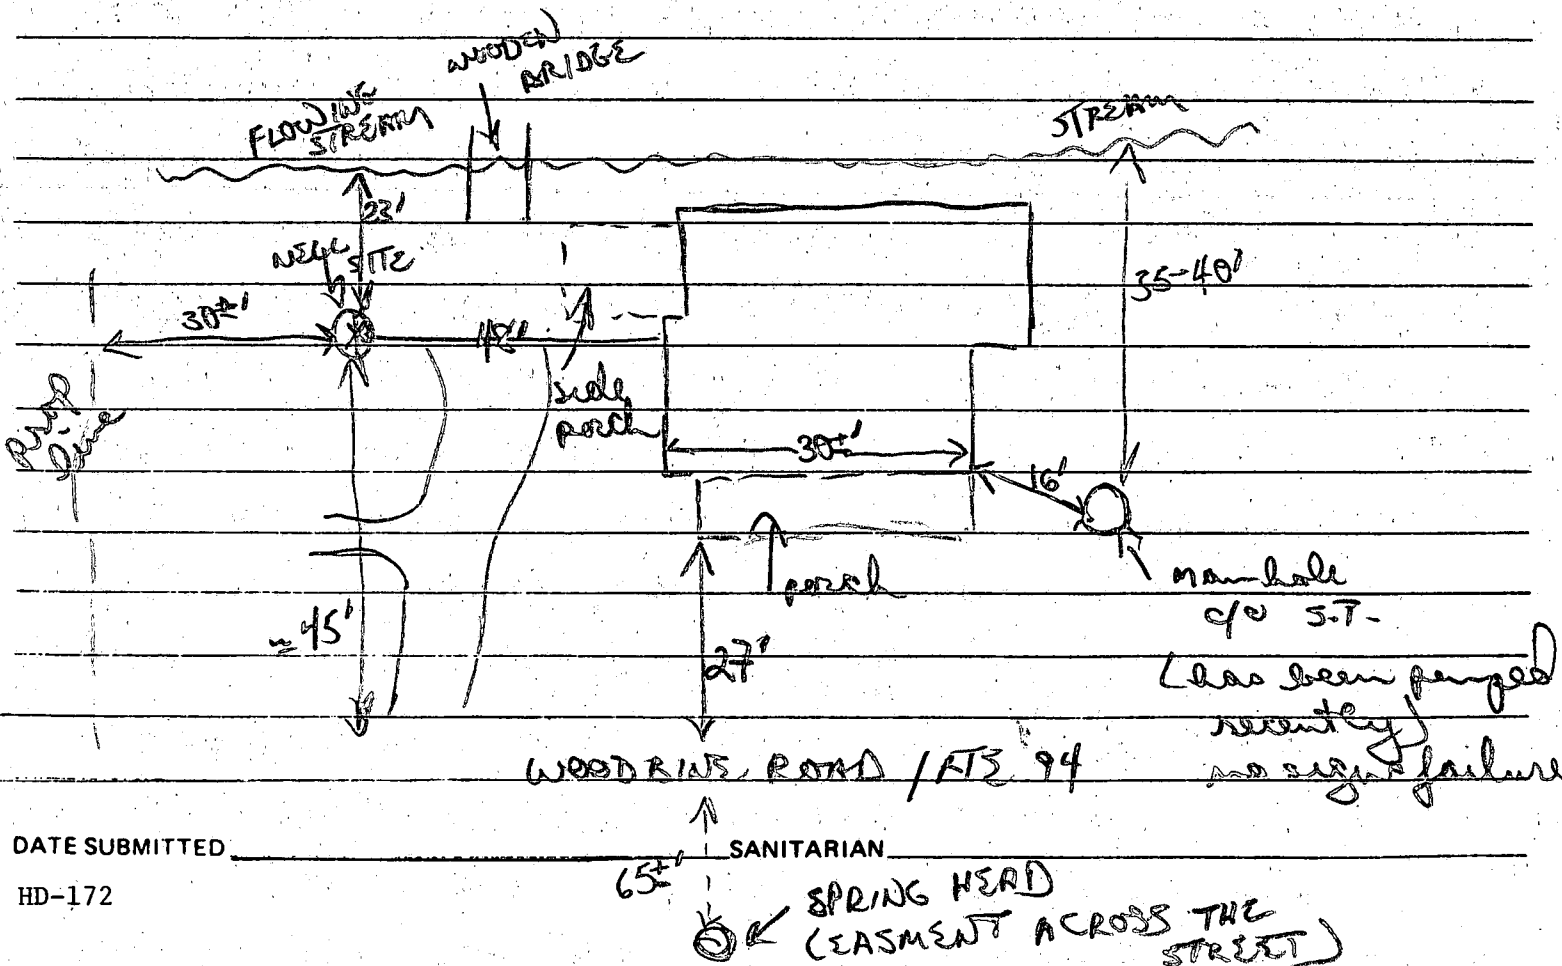 WOODEN
BRIDGE
FLOWING
STREAM
STREAM
23'
WELL SITE
35-40'
30±'
side
porch
prop
line
30±'
16'
porch
manhole
c/o S.T.
≈45'
27'
(has been pumped
recently)
no sign failure
WOODBINE ROAD / RTE 94
DATE SUBMITTED
SANITARIAN
65±'
HD-172
SPRING HEAD
(EASMENT ACROSS THE
STREET)